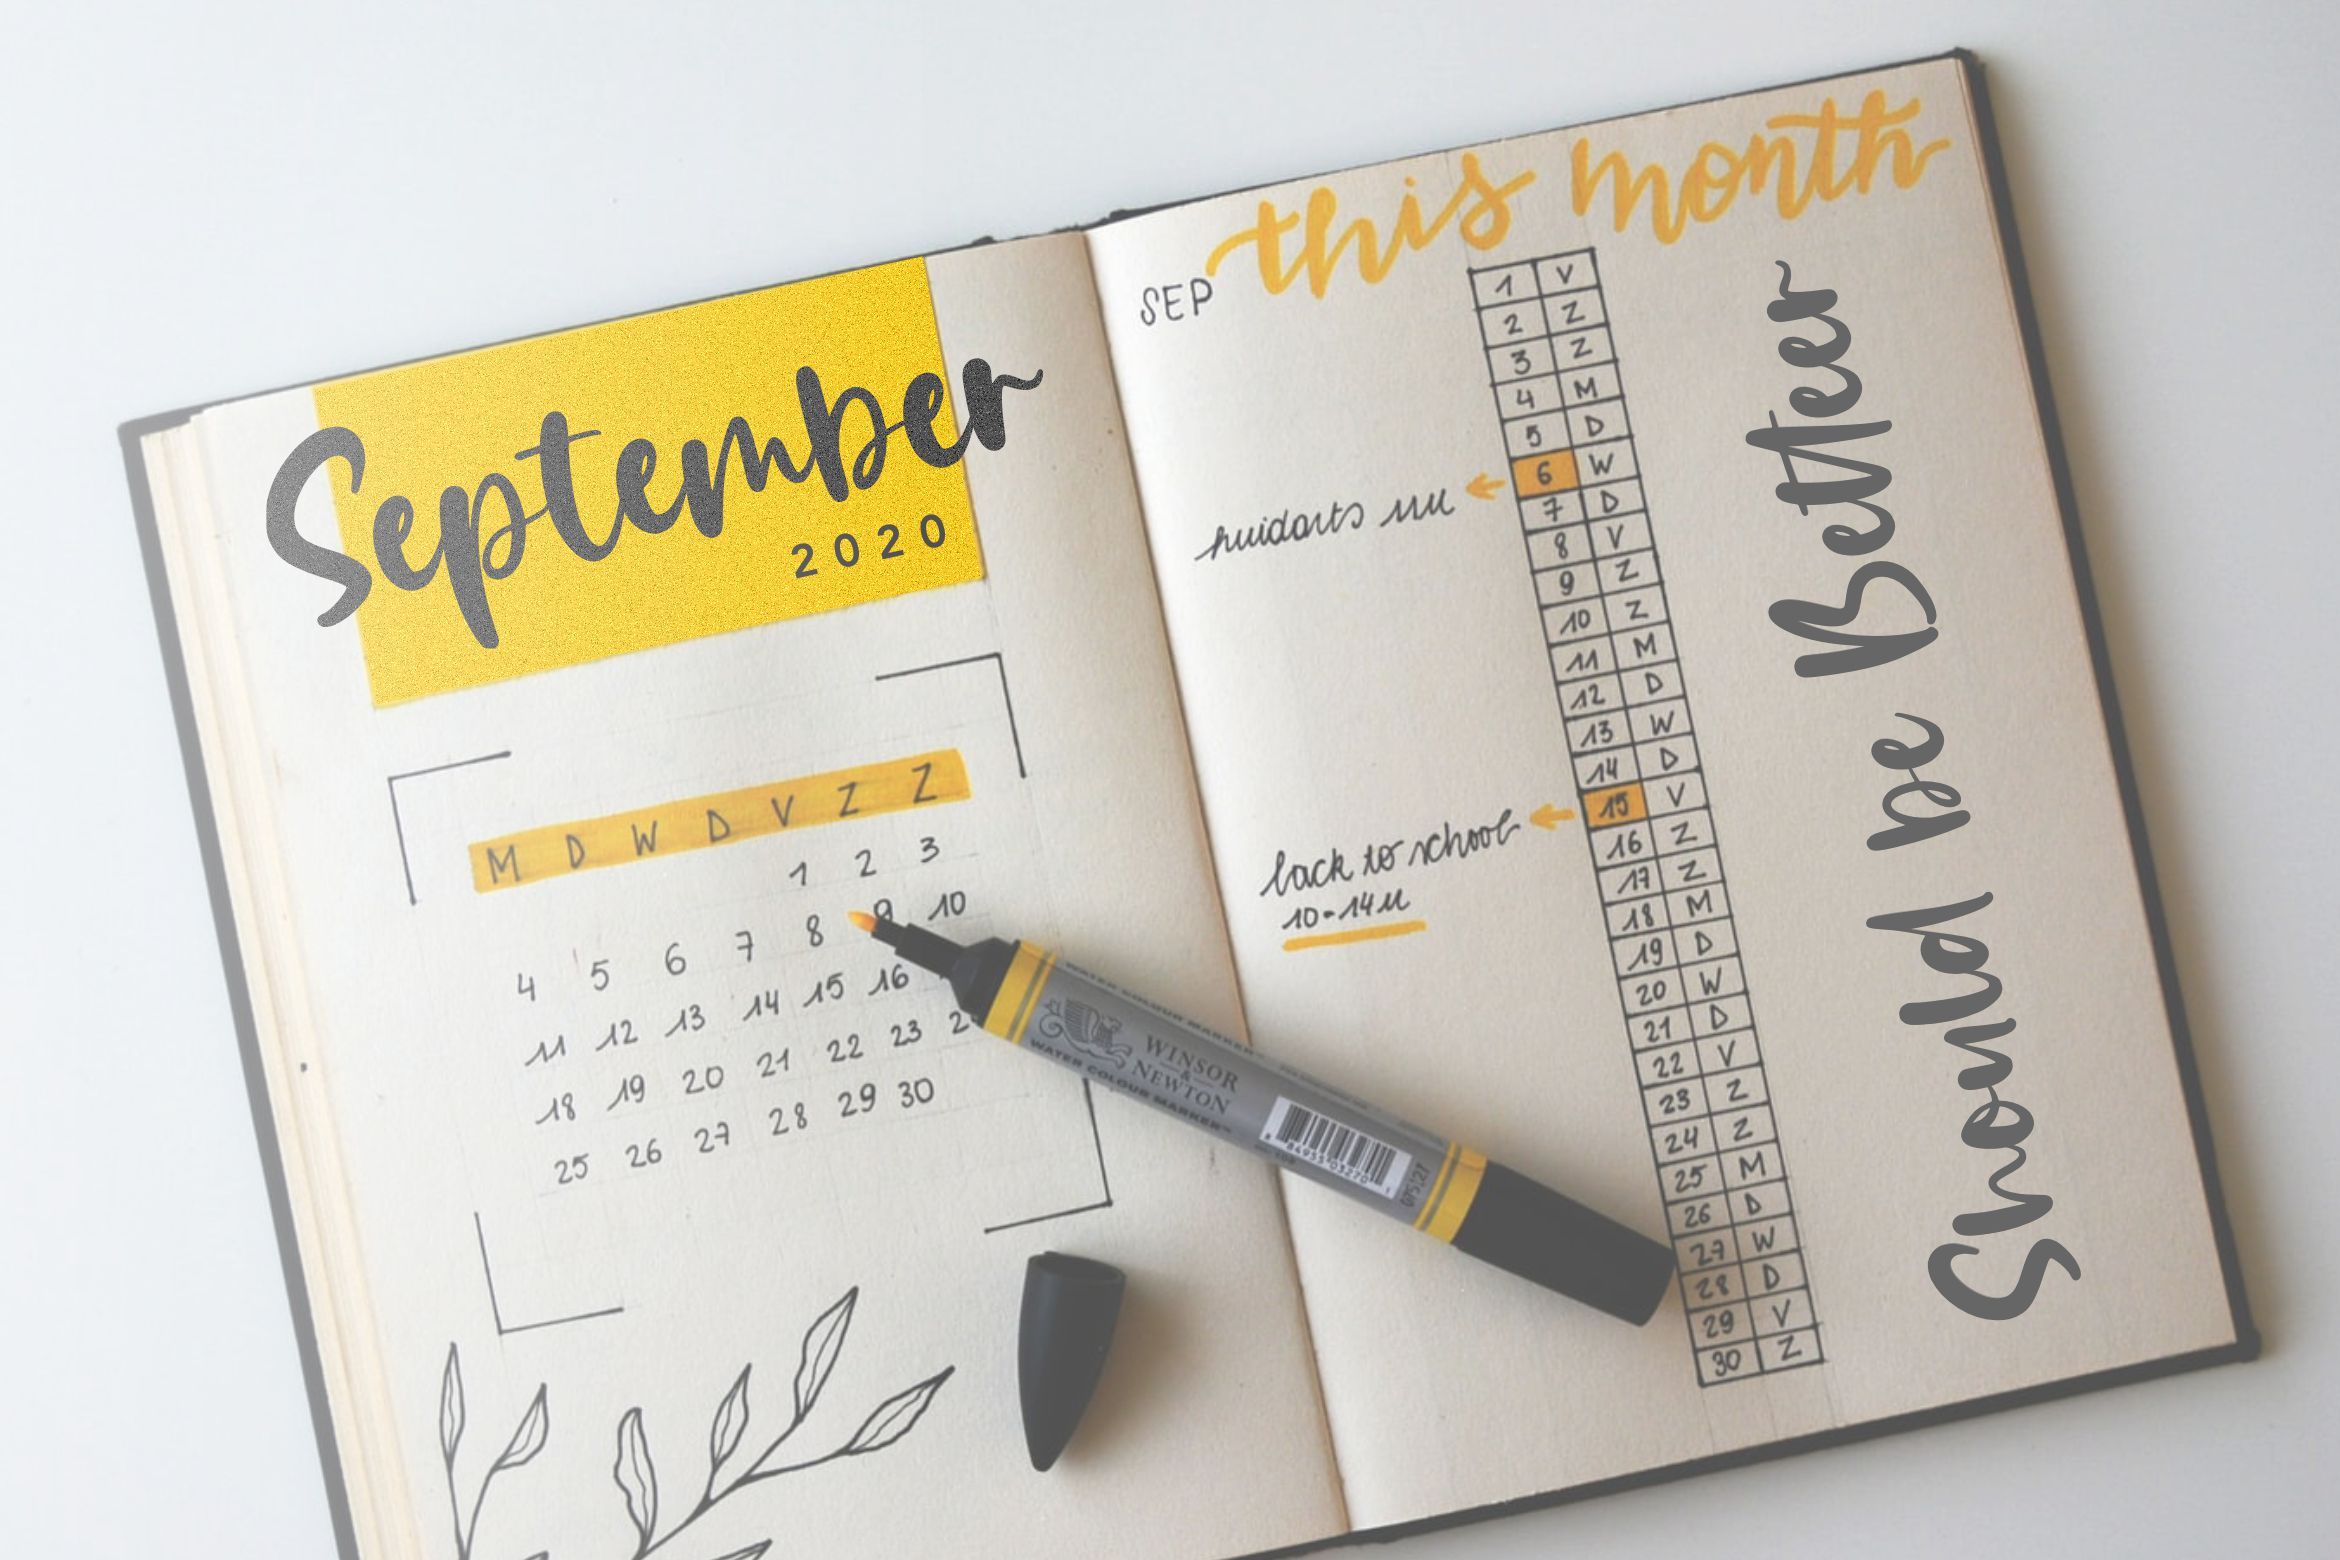 September
2020
M D W D V Z Z
1 2 3
4 5 6 7 8 9 10
11 12 13 14 15 16
18 19 20 21 22 23
25 26 27 28 29 30
this month
SEP
1 V
2 Z
3 Z
4 M
5 D
6 W
7 D
8 V
9 Z
10 Z
11 M
12 D
13 W
14 D
15 V
16 Z
17 Z
18 M
19 D
20 W
21 D
22 V
23 Z
24 Z
25 M
26 D
27 W
28 D
29 V
30 Z
back to school
10-14u
Should be Better
WATER COLOUR MARKER™
WINSOR
&
NEWTON
WATER COLOUR MARKER™